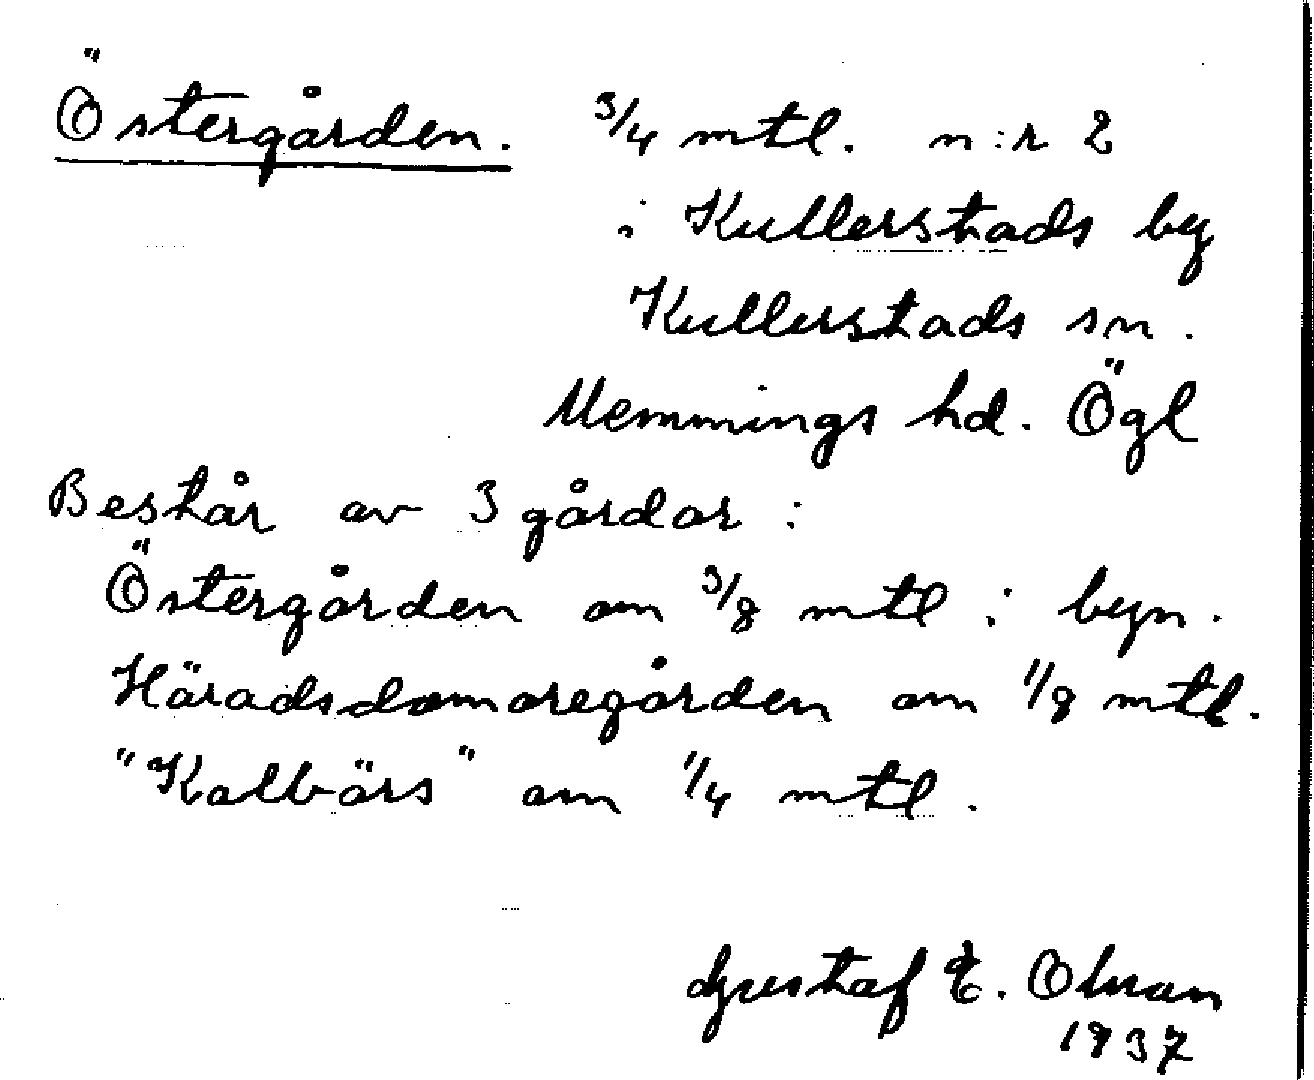 Östergården. 3/4 mtl. n:r 2
i Kullerstads by
Kullerstads sn.
Memmings hd. Ögl
Består av 3 gårdar:
Östergården om 3/8 mtl i byn.
Häradsdomaregården om 1/8 mtl.
"Kalbärs" om 1/4 mtl.
Gustaf E. Olman
1937